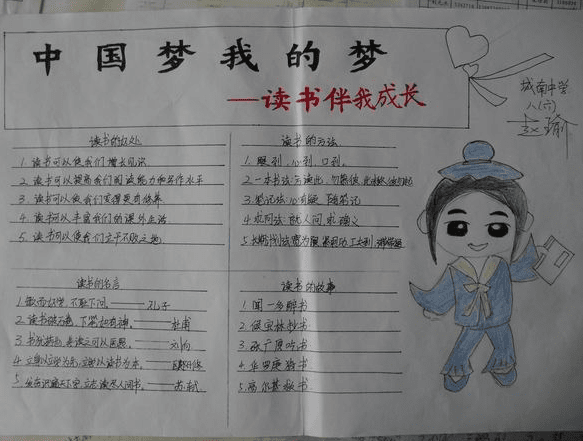 中国梦我的梦
——读书伴我成长
城南中学
八(六)
读书的好处
1. 读书可以使我们增长见识
2. 读书可以提高我们阅读能力和写作水平
3. 读书可以使我们变得更有修养
4. 读书可以丰富我们的课外生活
5. 读书可以使我们立于不败之地
读书的方法
1. 眼到,心到,口到。
2. 一本书法:
3. 笔记法: 随笔记
4. 求问法:
5.
读书的名言
1. 敏而好学,不耻下问。——孔子
2. 读书破万卷,下笔如有神。——杜甫
3. 书犹药也,善读之可以医愚。——刘向
4. 立身以立学为先,立学以读书为本。——欧阳修
5. 发奋识遍天下字,立志读尽人间书。——苏轼
读书的故事
1. 闻一多醉书
2. 侯宝林抄书
3. 张广厚吃书
4. 华罗庚猜书
5. 高尔基救书